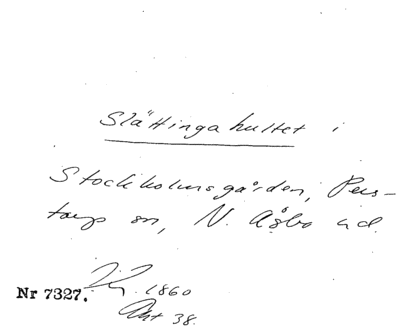 Slättingahultet i
Stockholmsgården, Pers-
torp sn, N. Åsbo hd.
1860
Nr 7327.
Akt 38.